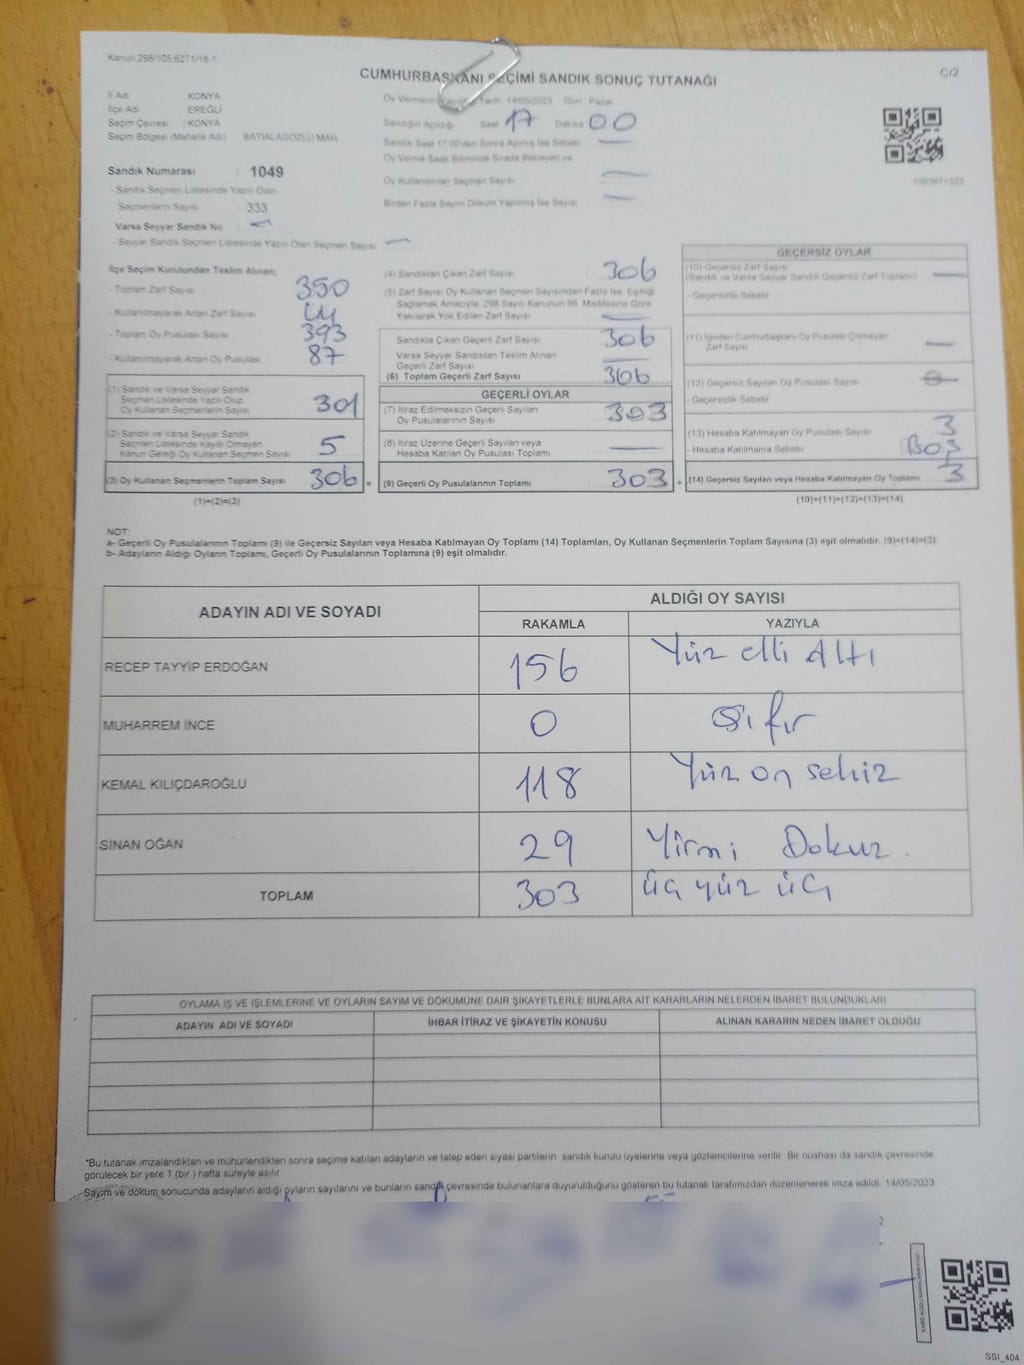 Kanun:298/105.6271/18-1
CUMHURBAŞKANI SEÇİMİ SANDIK SONUÇ TUTANAĞI
C/2
İl Adı KONYA
İlçe Adı EREĞLİ
Seçim Çevresi : KONYA
Seçim Bölgesi (Mahalle Adı) BATIALAGÖZLÜ MAH.
Sandık Numarası : 1049
- Sandık Seçmen Listesinde Yazılı Olan
Seçmenlerin Sayısı : 333
Varsa Seyyar Sandık No —
- Seyyar Sandık Seçmen Listesinde Yazılı Olan Seçmen Sayısı —
Oy Vermenin Tarih 14/05/2023 Gün Pazar
Sandığın Açıldığı Saat 17 Dakika 00
Sandık Saat 17.00'den Sonra Açılmış İse Sebebi —
Oy Verme Saati Bitiminde Sırada Bekleyen ve
Oy Kullandırılan Seçmen Sayısı —
Birden Fazla Sayım Döküm Yapılmış İse Sayısı —
1093871323
İlçe Seçim Kurulundan Teslim Alınan;
- Toplam Zarf Sayısı 350
- Kullanılmayarak Artan Zarf Sayısı
- Toplam Oy Pusulası Sayısı 393
- Kullanılmayarak Artan Oy Pusulası 87
(1) Sandık ve Varsa Seyyar Sandık
Seçmen Listesinde Yazılı Olup
Oy Kullanan Seçmenlerin Sayısı 301
(2) Sandık ve Varsa Seyyar Sandık
Seçmen Listesinde Kayıtlı Olmayan
Kanun Gereği Oy Kullanan Seçmen Sayısı 5
(3) Oy Kullanan Seçmenlerin Toplam Sayısı 306 =
(1)+(2)=(3)
(4) Sandıktan Çıkan Zarf Sayısı 306
(5) Zarf Sayısı Oy Kullanan Seçmen Sayısından Fazla İse, Eşitliği
Sağlamak Amacıyla, 298 Sayılı Kanunun 98. Maddesine Göre
Yakılarak Yok Edilen Zarf Sayısı —
Sandıkta Çıkan Geçerli Zarf Sayısı 306
Varsa Seyyar Sandıktan Teslim Alınan
Geçerli Zarf Sayısı —
(6) Toplam Geçerli Zarf Sayısı 306
GEÇERLİ OYLAR
(7) İtiraz Edilmeksizin Geçerli Sayılan
Oy Pusulalarının Sayısı 303
(8) İtiraz Üzerine Geçerli Sayılan veya
Hesaba Katılan Oy Pusulası Toplamı —
(9) Geçerli Oy Pusulalarının Toplamı 303 +
GEÇERSİZ OYLAR
(10) Geçersiz Zarf Sayısı
(Sandık ve Varsa Seyyar Sandık Geçersiz Zarf Toplamı) —
- Geçersizlik Sebebi
(11) İçinden Cumhurbaşkanı Oy Pusulası Çıkmayan
Zarf Sayısı —
(12) Geçersiz Sayılan Oy Pusulası Sayısı
- Geçersizlik Sebebi
(13) Hesaba Katılmayan Oy Pusulası Sayısı 3
- Hesaba Katılmama Sebebi
(14) Geçersiz Sayılan veya Hesaba Katılmayan Oy Toplamı 3
(10)+(11)+(12)+(13)=(14)
NOT:
a- Geçerli Oy Pusulalarının Toplamı (9) ile Geçersiz Sayılan veya Hesaba Katılmayan Oy Toplamı (14) Toplamları, Oy Kullanan Seçmenlerin Toplam Sayısına (3) eşit olmalıdır. (9)+(14)=(3)
b- Adayların Aldığı Oyların Toplamı, Geçerli Oy Pusulalarının Toplamına (9) eşit olmalıdır.
ADAYIN ADI VE SOYADI ALDIĞI OY SAYISI
RAKAMLA YAZIYLA
RECEP TAYYİP ERDOĞAN 156 Yüz elli Altı
MUHARREM İNCE 0 sıfır
KEMAL KILIÇDAROĞLU 118 Yüz on sekiz
SİNAN OĞAN 29 Yirmi Dokuz.
TOPLAM 303 üç yüz üç
OYLAMA İŞ VE İŞLEMLERİNE VE OYLARIN SAYIM VE DÖKÜMÜNE DAİR ŞİKAYETLERLE BUNLARA AİT KARARLARIN NELERDEN İBARET BULUNDUKLARI
ADAYIN ADI VE SOYADI İHBAR İTİRAZ VE ŞİKAYETİN KONUSU ALINAN KARARIN NEDEN İBARET OLDUĞU
*Bu tutanak imzalandıktan ve mühürlendikten sonra seçime katılan adayların ve talep eden siyasi partilerin sandık kurulu üyelerine veya gözlemcilerine verilir. Bir nüshası da sandık çevresinde
görülecek bir yere 1 (bir) hafta süreyle asılır.
-Sayım ve döküm sonucunda adayların aldığı oyların sayılarını ve bunların sandık çevresinde bulunanlara duyurulduğunu gösteren bu tutanak tarafımızdan düzenlenerek imza edildi. 14/05/2023
SSI_404